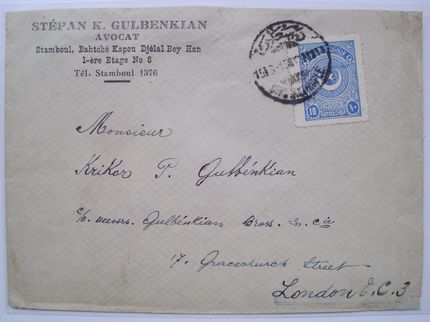 STÉPAN K. GULBENKIAN
AVOCAT
Stamboul, Bahtché Kapou Djélal Bey Han
1-ère Etage No 8
Tél. Stamboul 1376
10
١٠
Monsieur
Krikor P. Gulbénkian
c/o messrs. Gulbénkian Bross. & Cie
17, Gracechurch Street
London E.C.3